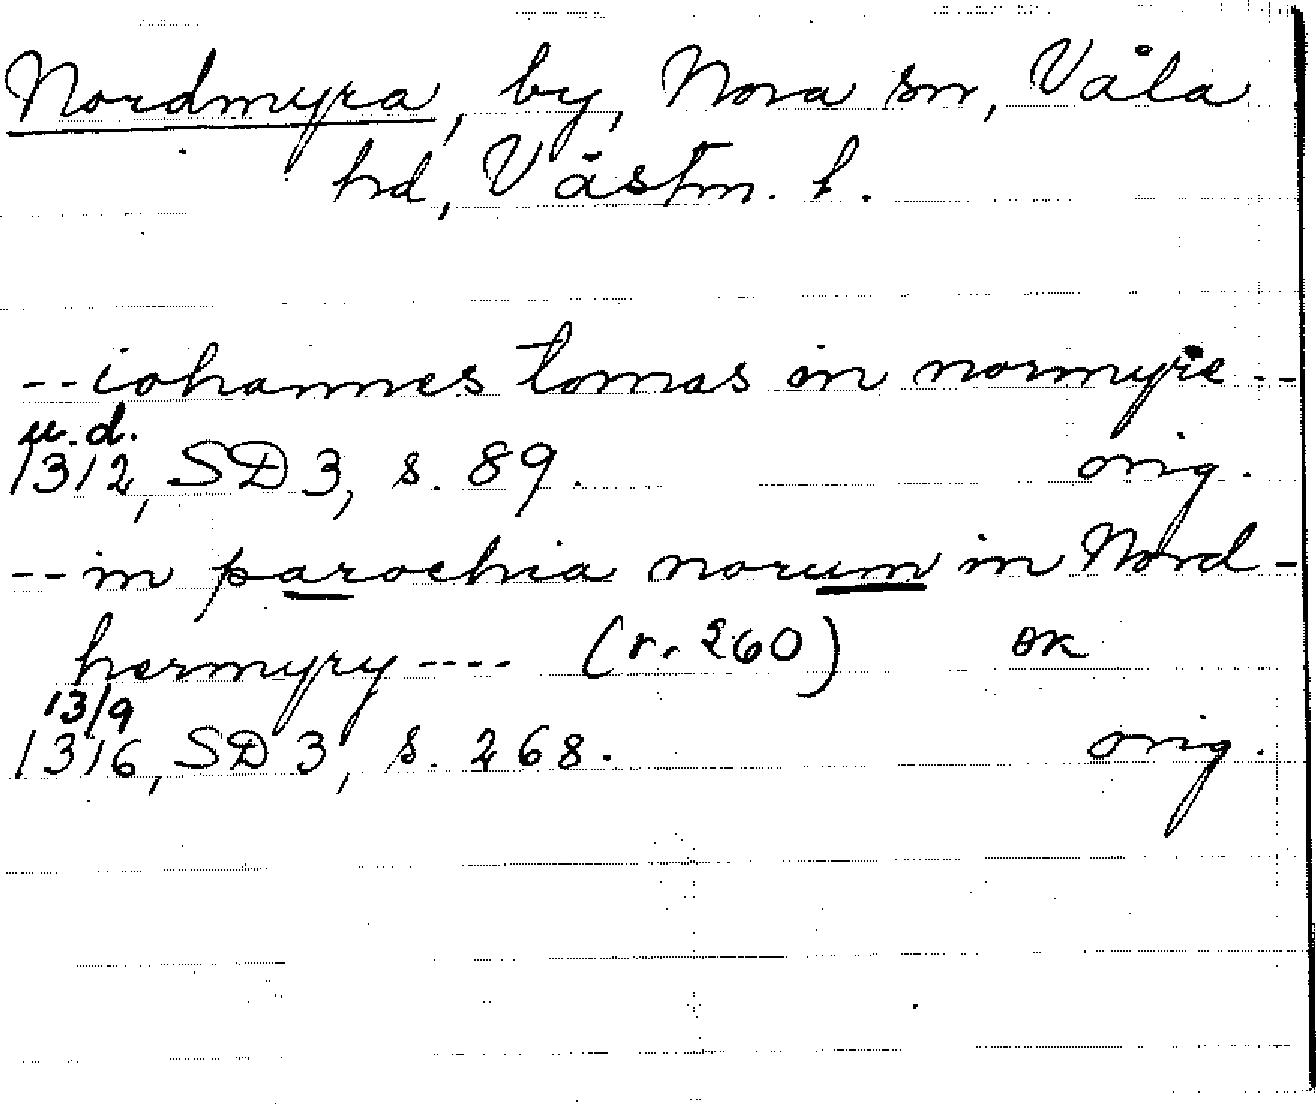 Nordmyra, by, Nora sn, Våla
hd, Västm. l.
--iohannes tomas in normyre--
u.d.
1312, SD 3, s. 89. orig.
--in parochia norum in Nord-
hermyry---- (r. 260) OK
13/9
1316, SD 3, s. 268. orig.